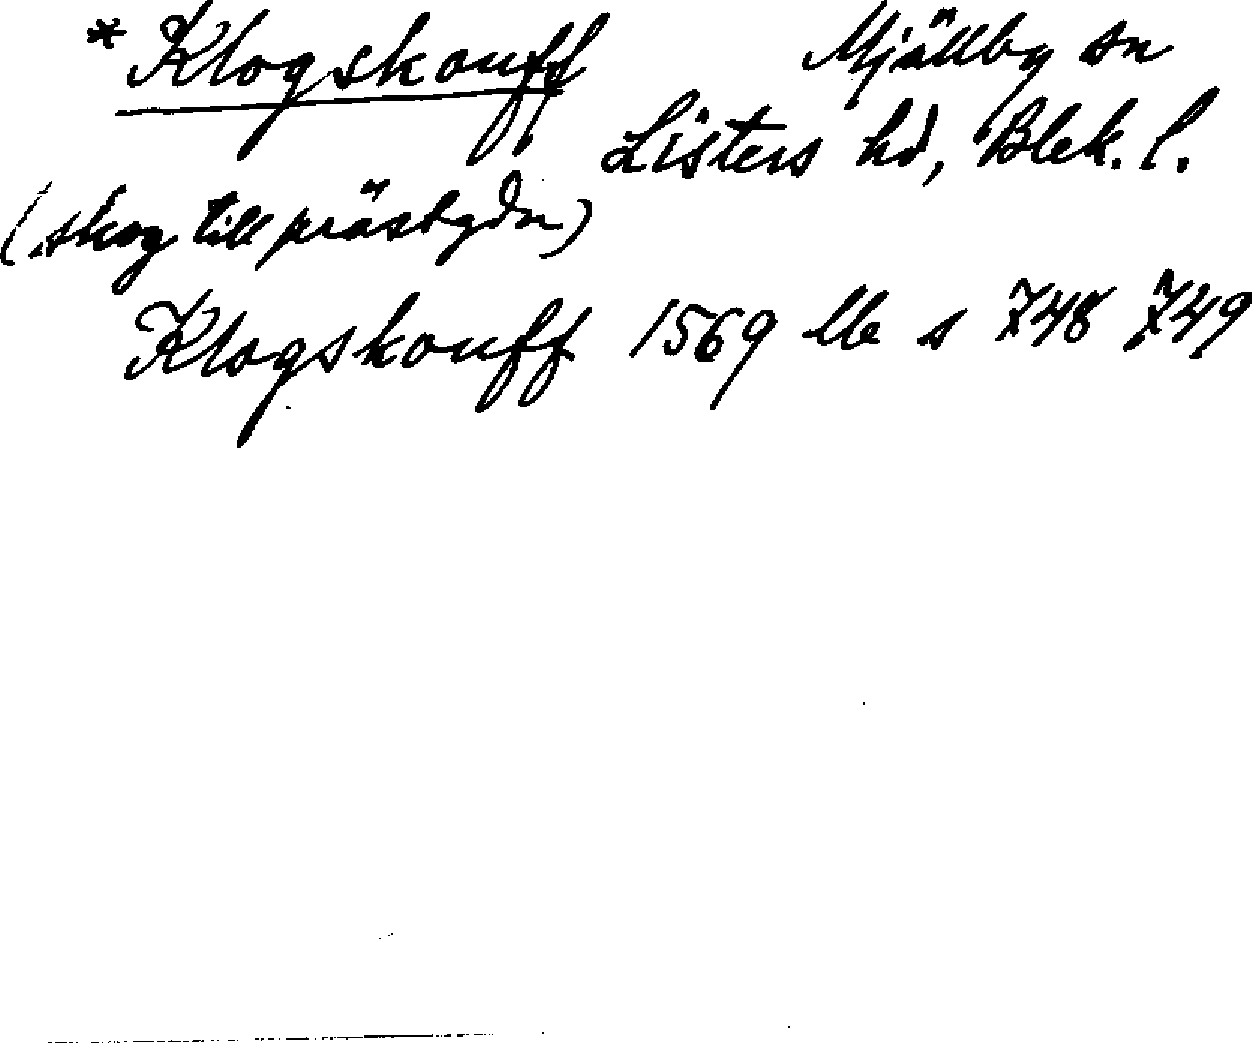 * Klogskouff
Mjällby sn
Listers hd, Blek. l.
(skog till prästgdn)
Klogskouff 1569 llb s 748 749